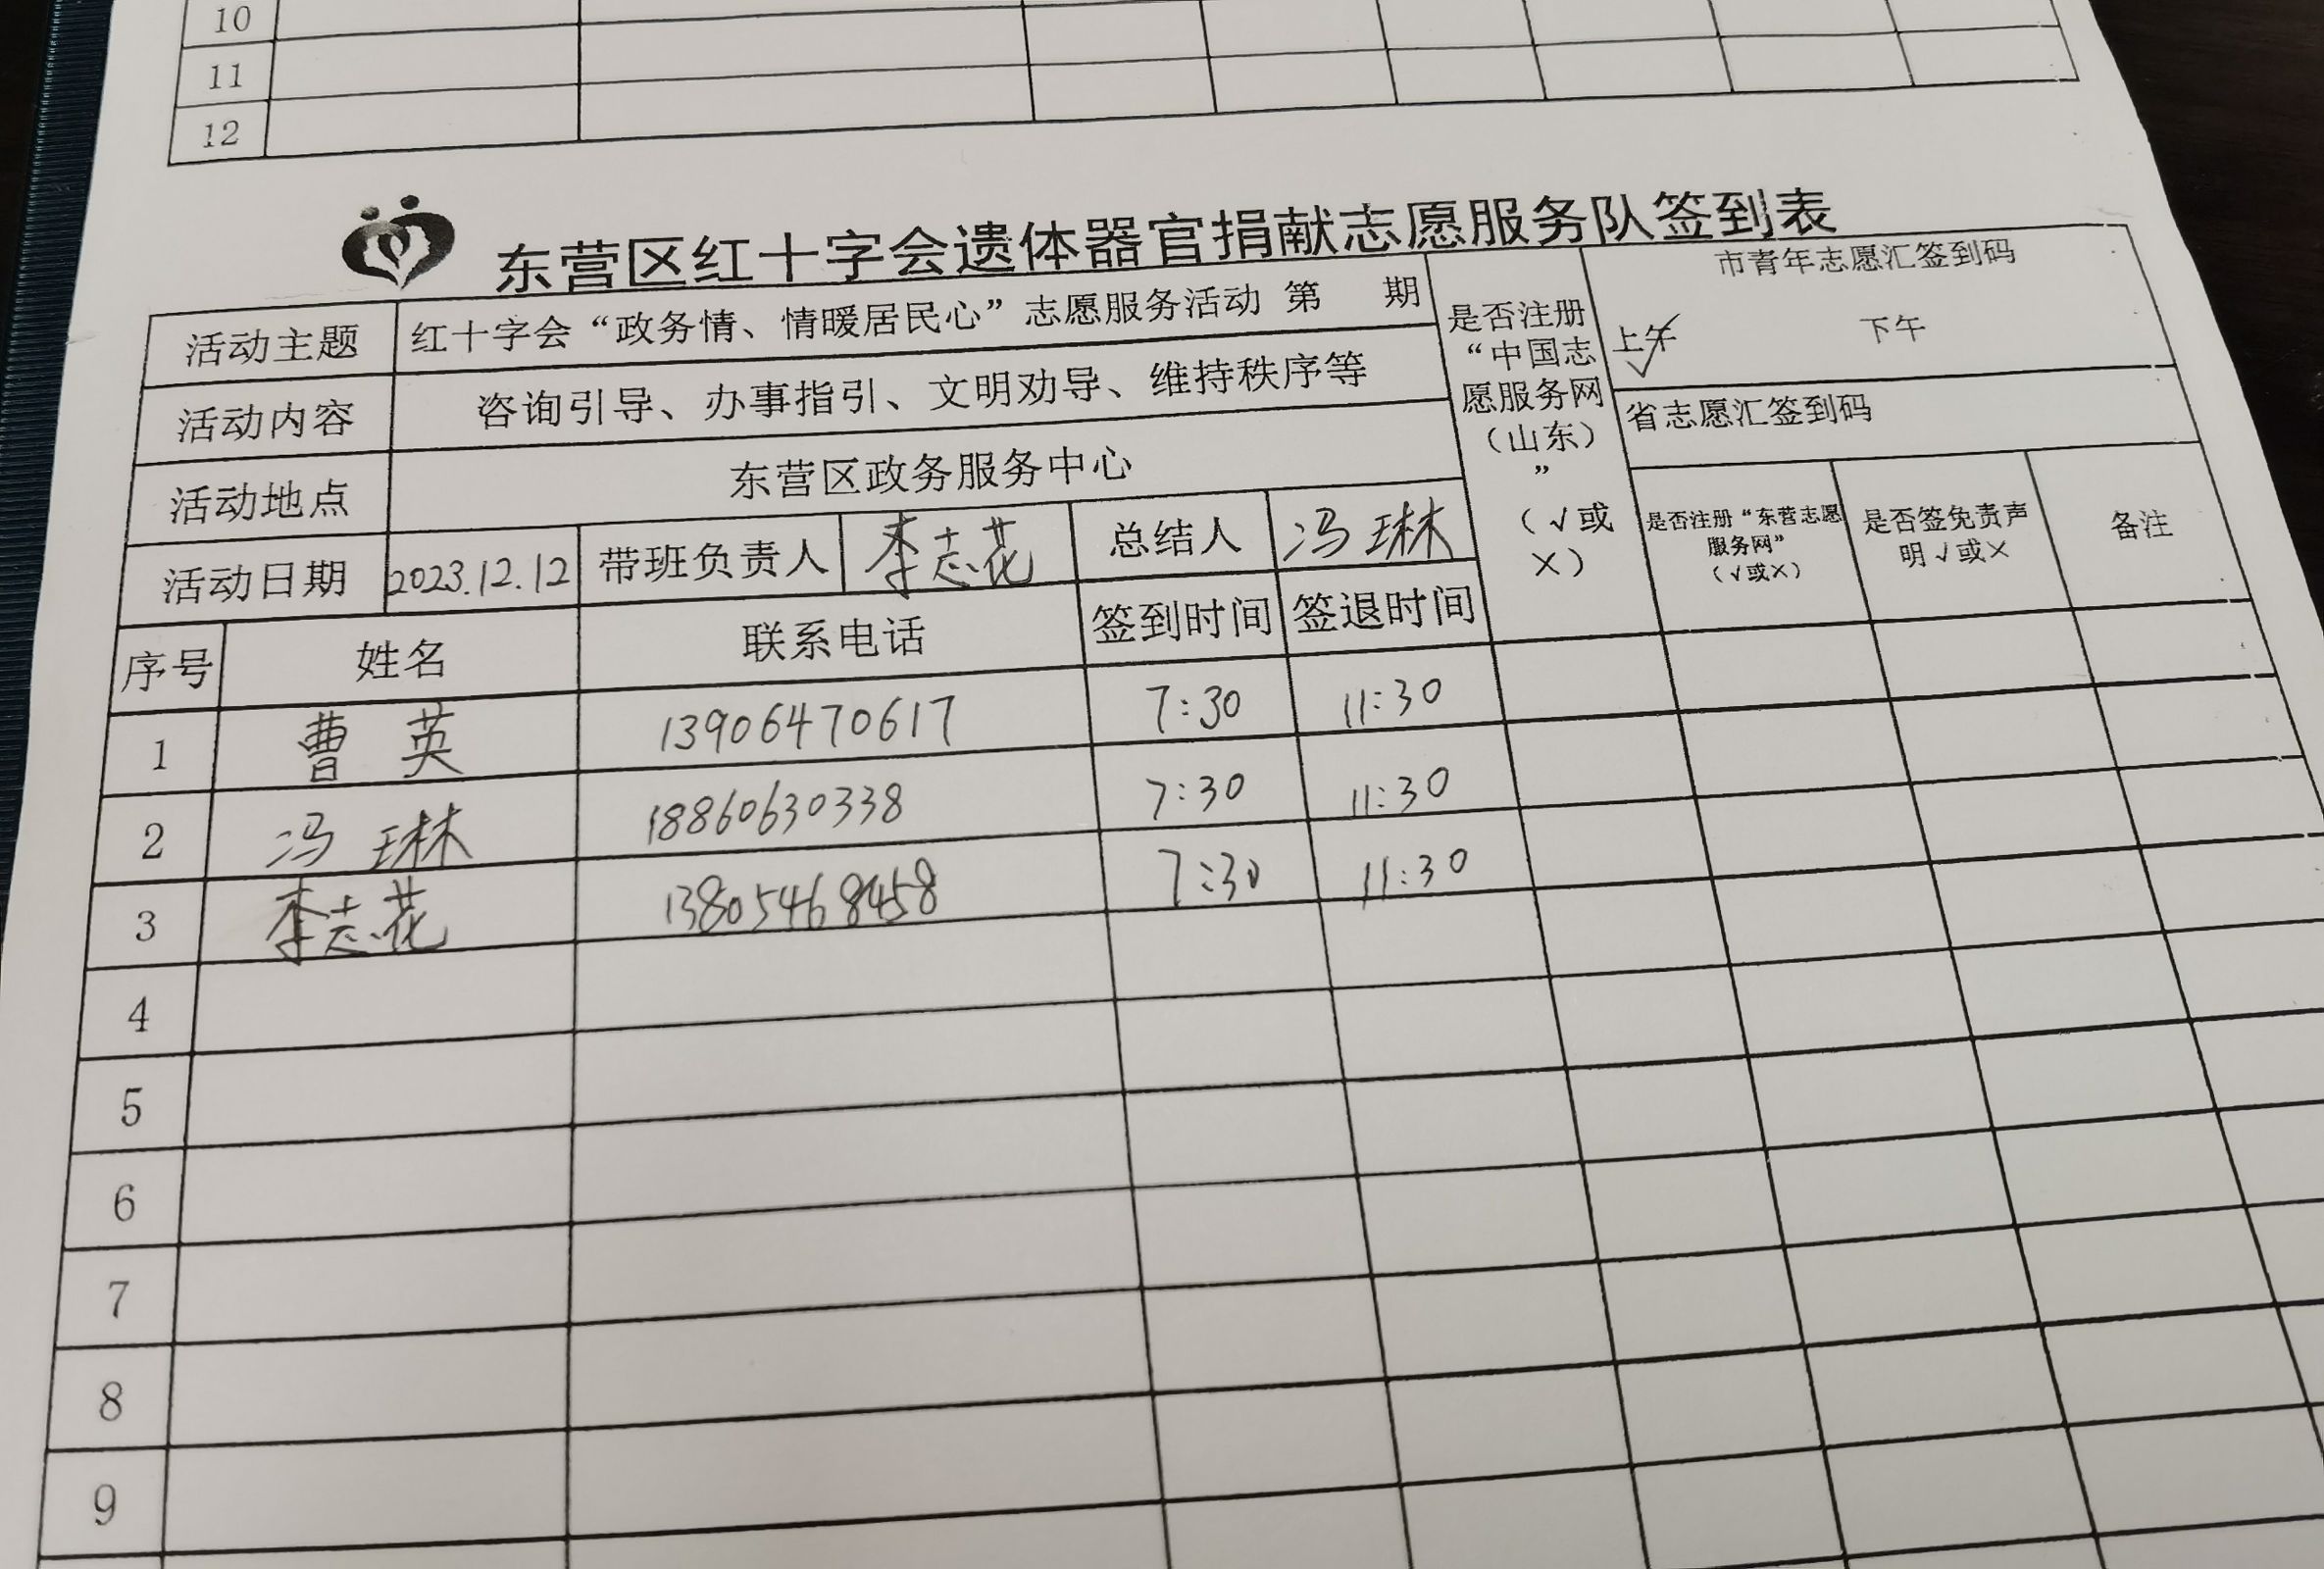 10
11
12
东营区红十字会遗体器官捐献志愿服务队签到表
活动主题 红十字会“政务情、情暖居民心”志愿服务活动 第 期
活动内容 咨询引导、办事指引、文明劝导、维持秩序等
活动地点 东营区政务服务中心
活动日期 2023.12.12 带班负责人 李志花 总结人 冯琳
是否注册
“中国志
愿服务网
（山东）
”
（√或
×）
市青年志愿汇签到码
上午 √ 下午
省志愿汇签到码
是否注册“东营志愿
服务网”
（√或×）
是否签免责声
明√或×
备注
序号 姓名 联系电话 签到时间 签退时间
1 曹英 13906470617 7:30 11:30
2 冯琳 18860630338 7:30 11:30
3 李志花 13805468458 7:30 11:30
4
5
6
7
8
9